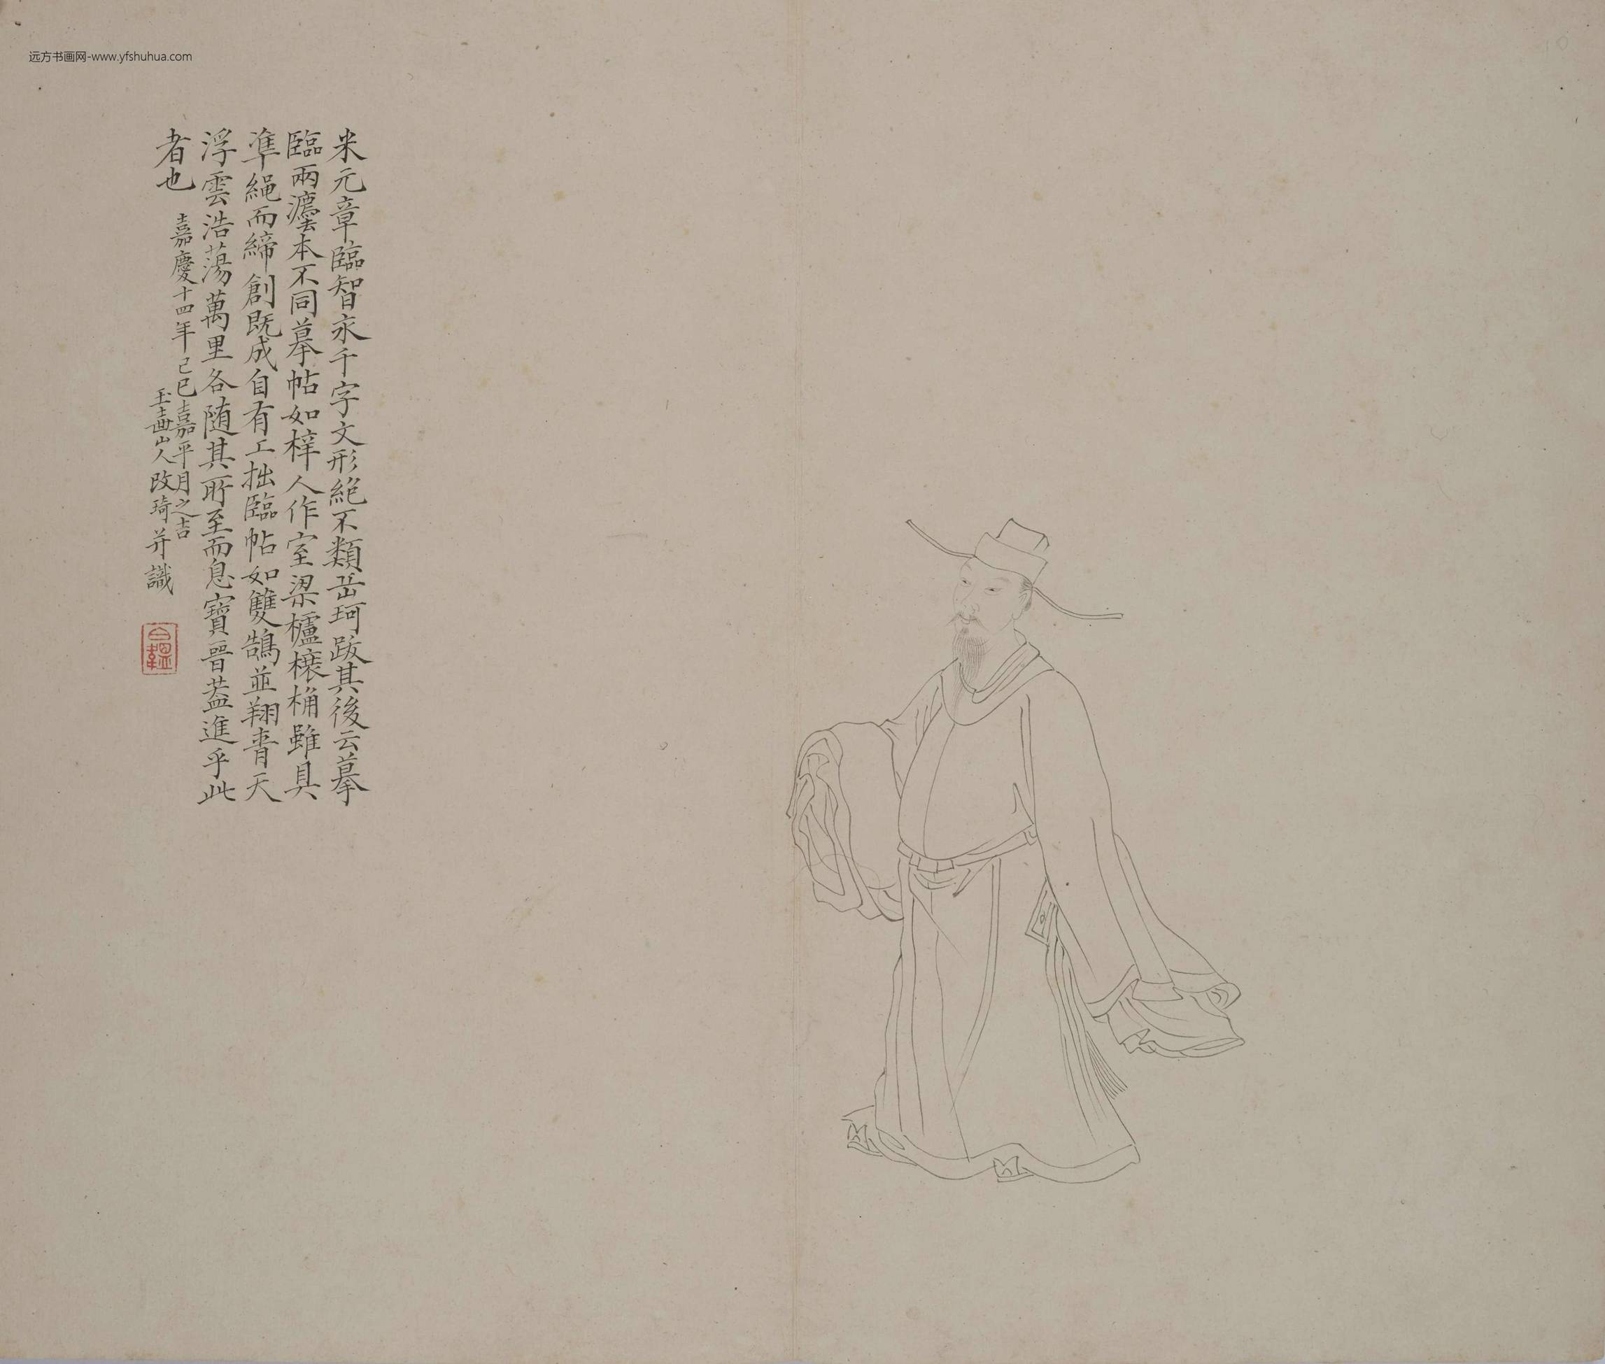 远方书画网-www.yfshuhua.com
米元章臨智永千字文形絶不類岳珂跋其後云摹
臨兩灋本不同摹帖如梓人作室梁櫨榱桷雖具
準繩而締創既成自有工拙臨帖如雙鵠並翔青天
浮雲浩蕩萬里各随其所至而息寶晉葢進乎此
者也
嘉慶十四年己巳嘉平月之吉
玉壺山人改琦并識